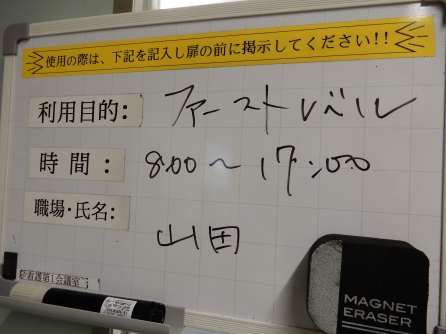 使用の際は、下記を記入し扉の前に掲示してください!!
利用目的: ファーストレベル
時間: 8:00〜17:00
職場・氏名:
山田
看護第1会議室
MAGNET
ERASER